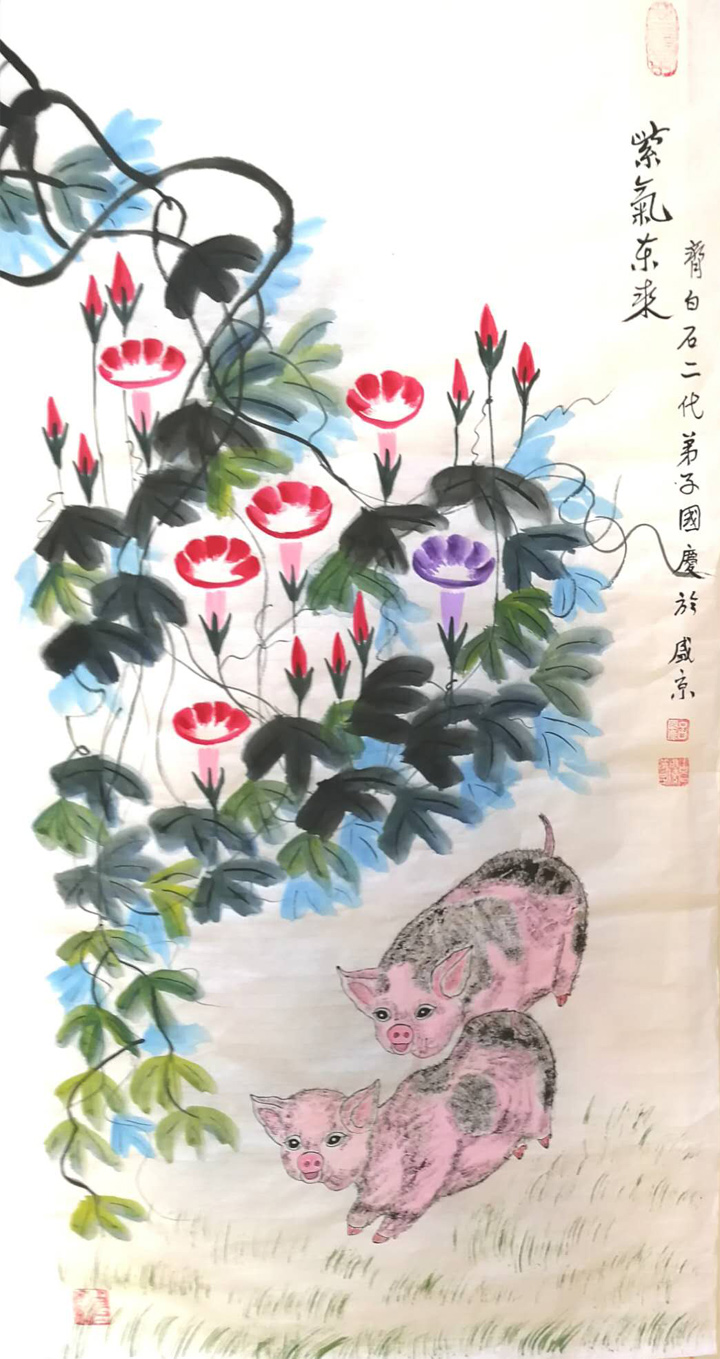 紫氣东来
齊白石二代弟子國慶於盛京